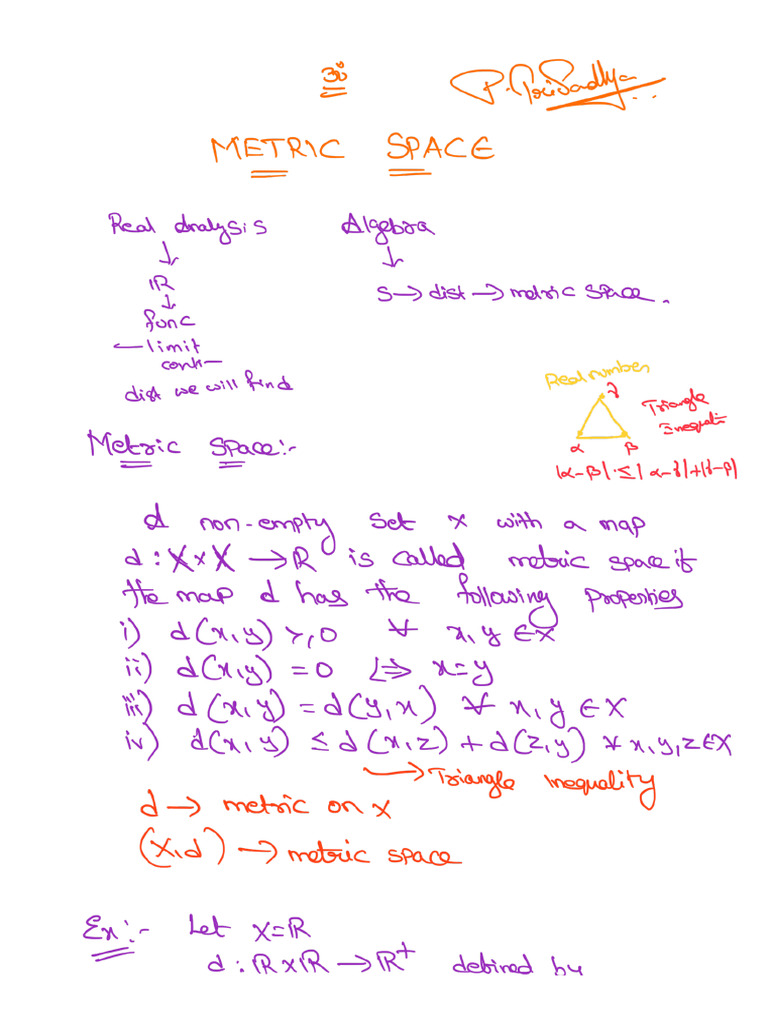 ॐ
P. Tri Sadhya
METRIC SPACE
Real Analysis Algebra
↓ ↓
ℝ S → dist → metric space.
↓
func
← limit
conti–
dist we will find
Real number
γ
Triangle
Inequali
α β
|α-β| ≤ |α-γ|+|γ-β|
Metric Space:-
A non-empty set X with a map
d : X×X → ℝ is called metric space if
the map d has the following properties
i) d(x,y) ≥ 0 ∀ x,y ∈ X
ii) d(x,y) = 0 ⇔ x=y
iii) d(x,y) = d(y,x) ∀ x,y ∈ X
iv) d(x,y) ≤ d(x,z) + d(z,y) ∀ x,y,z ∈ X
→ Triangle Inequality
d → metric on X
(X,d) → metric space
Ex:- Let X=ℝ
d : ℝ×ℝ → ℝ⁺ defined by